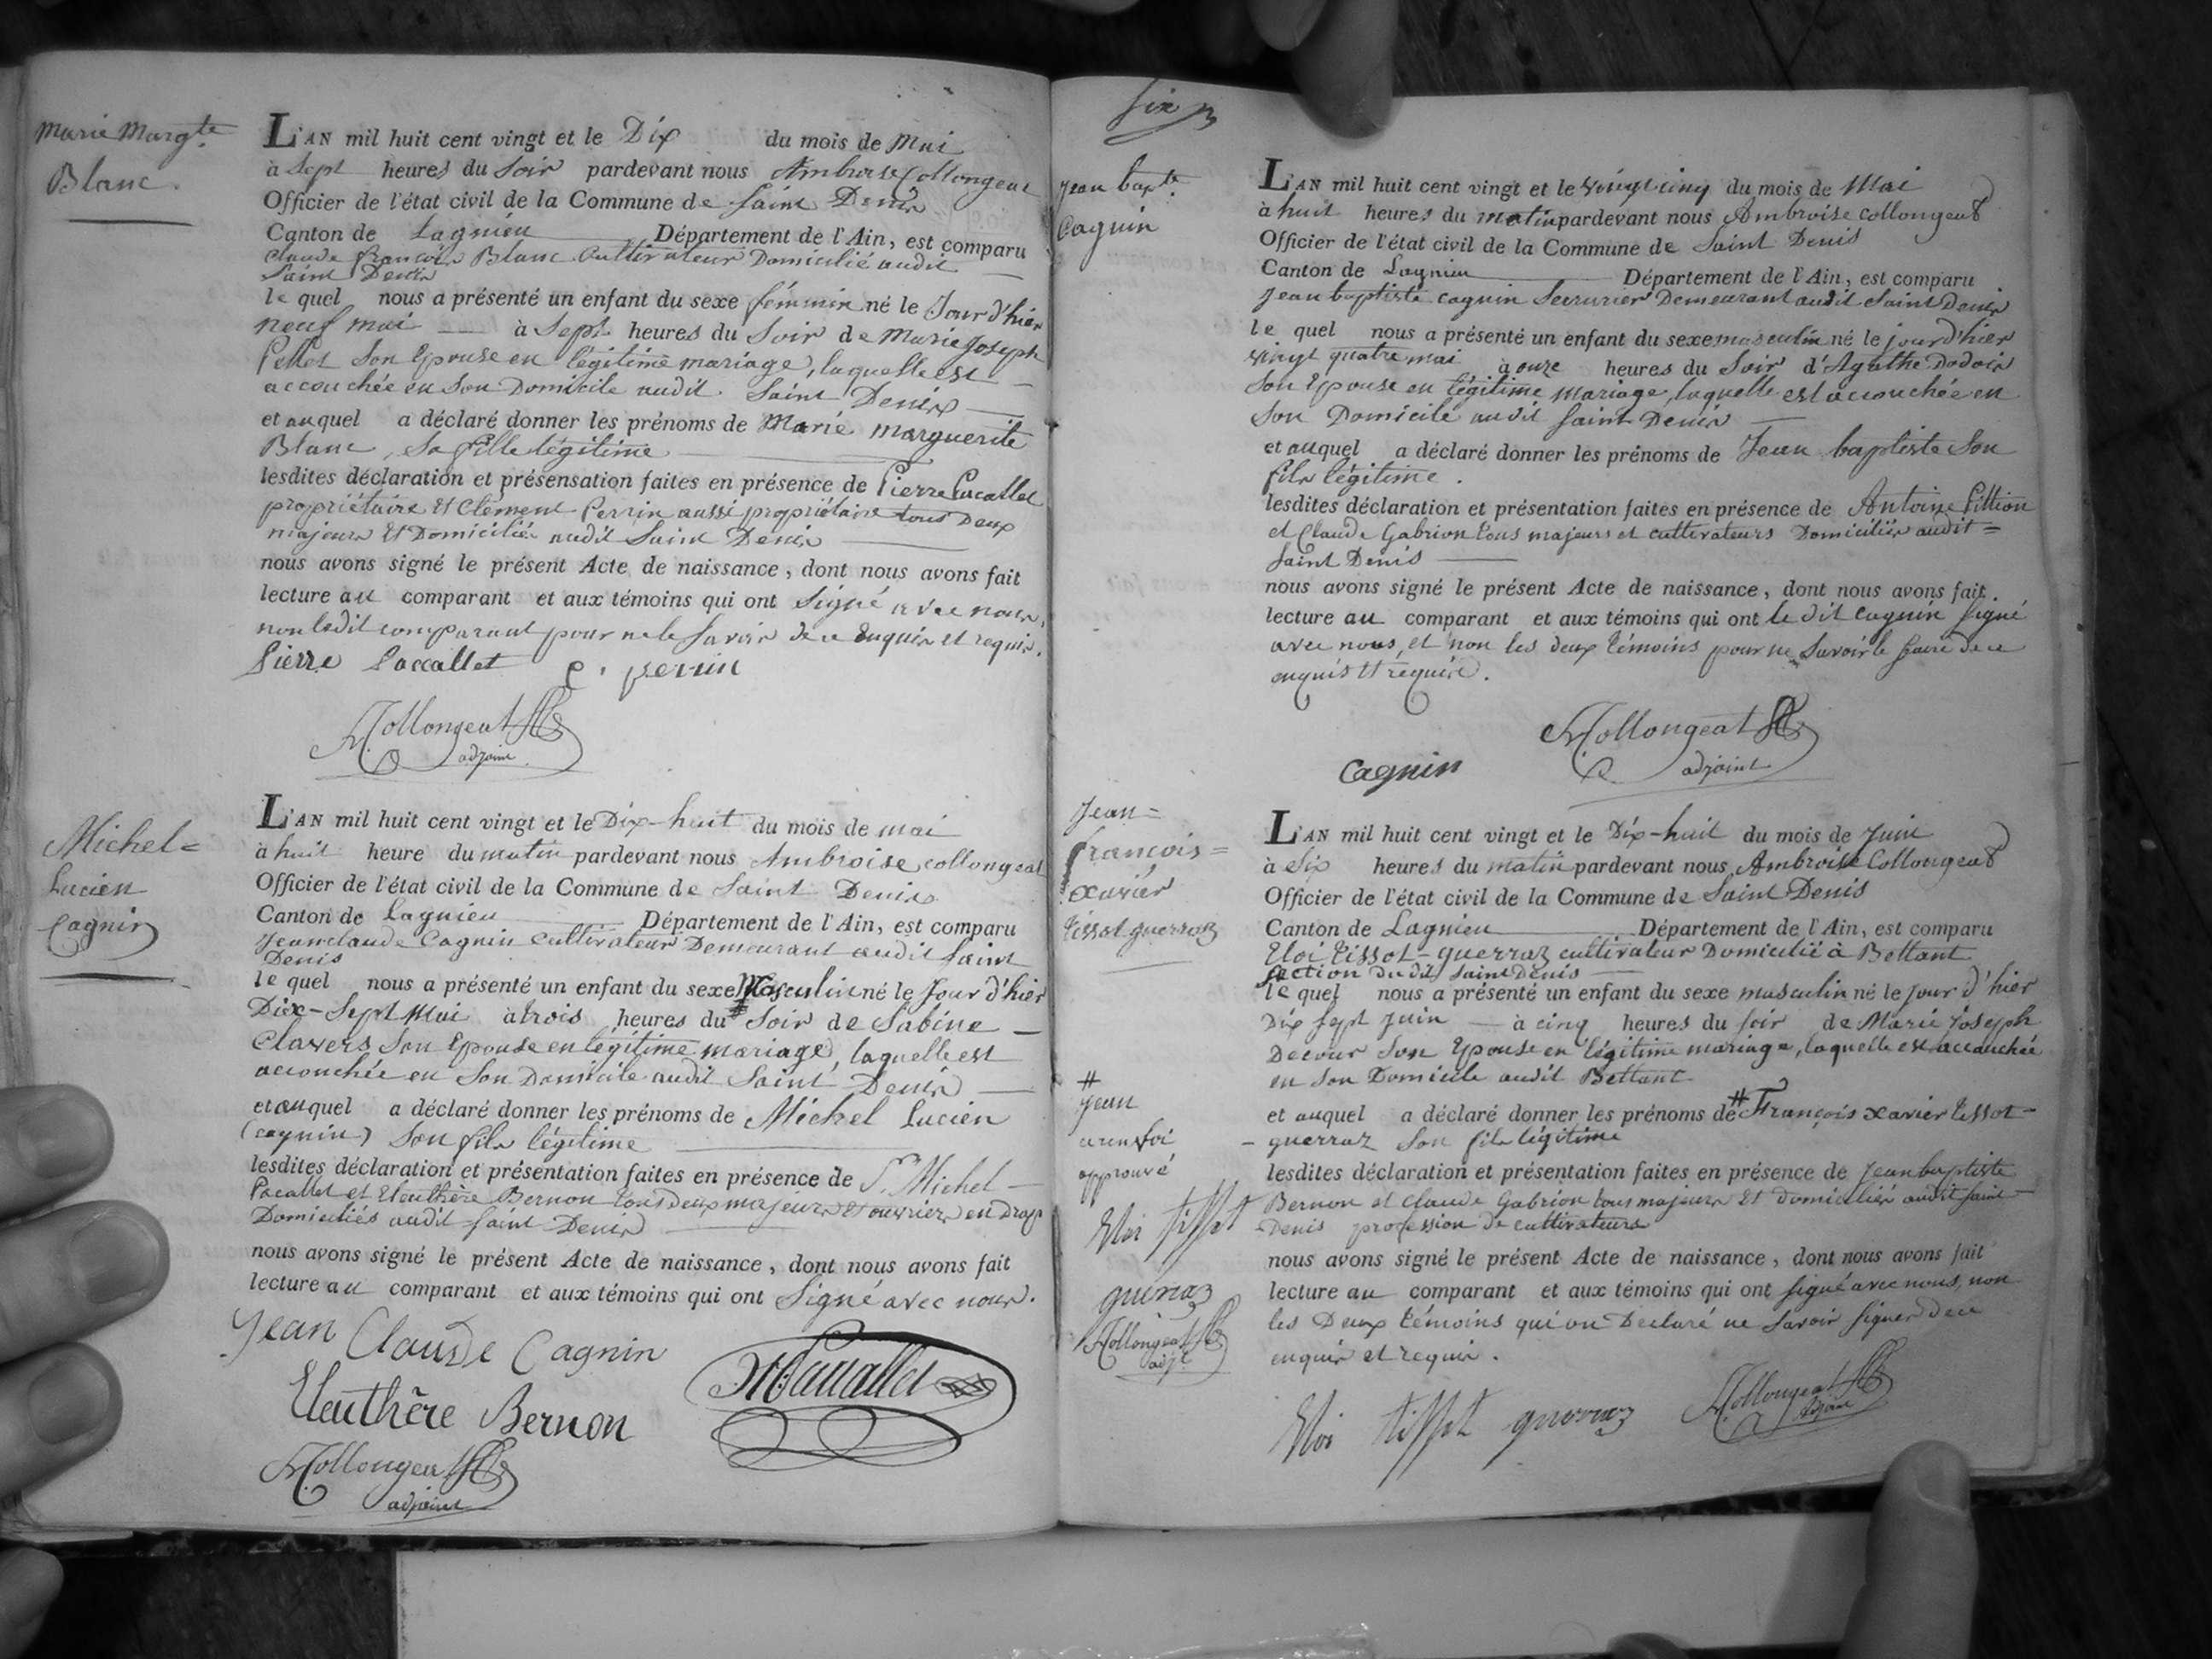 Marie Margte
Blanc.
L'AN mil huit cent vingt et le Dix du mois de Mai
à Sept heures du Soir pardevant nous Ambroise Collongeat
Officier de l'état civil de la Commune de Saint Denis
Canton de Lagnieu Département de l'Ain, est comparu
Claude françois Blanc Cultivateur Domicilié audit
Saint Denis
le quel nous a présenté un enfant du sexe féminin né le Jour d'hier
neuf mai à Sept heures du Soir de Marie Joseph
Pellet Son Epouse en légitime mariage, laquelle est
accouchée en Son Domicile audit Saint Denis
et auquel a déclaré donner les prénoms de Marie Marguerite
Blanc, Sa fille légitime
lesdites déclaration et présensation faites en présence de Pierre Pacallet
propriétaire et Clément Perrin aussi propriétaire tous Deux
majeurs et Domiciliés audit Saint Denis
nous avons signé le présent Acte de naissance, dont nous avons fait
lecture au comparant et aux témoins qui ont Signé avec nous,
non ledit comparant pour ne le Savoir de ce Enquis et requis.
Pierre Paccallet C. perrin
Collongeat
adjoint
Michel=
Lucien
Cagnin
L'AN mil huit cent vingt et le Dix-huit du mois de mai
à huit heure du matin pardevant nous Ambroise Collongeat
Officier de l'état civil de la Commune de Saint Denis
Canton de Lagnieu Département de l'Ain, est comparu
Jean claude Cagnin Cultivateur Demeurant audit Saint
Denis
le quel nous a présenté un enfant du sexe Masculin né le Jour d'hier
Dix-Sept Mai à trois heures du Soir de Sabine
Clavers Son Epouse en légitime mariage, laquelle est
accouchée en Son Domicile audit Saint Denis
et auquel a déclaré donner les prénoms de Michel Lucien
(cagnin) Son fils légitime
lesdites déclaration et présentation faites en présence de Michel
Pacallet et Eleuthère Bernon tous deux majeurs et ouvriers en Drap
Domiciliés audit Saint Denis
nous avons signé le présent Acte de naissance, dont nous avons fait
lecture au comparant et aux témoins qui ont Signé avec nous.
Jean Claude Cagnin
Eleuthère Bernon
Collongeat
adjoint
six
Jean Bapte
Cagnin
L'AN mil huit cent vingt et le vingt cinq du mois de Mai
à huit heures du matin pardevant nous Ambroise Collongeat
Officier de l'état civil de la Commune de Saint Denis
Canton de Lagnieu Département de l'Ain, est comparu
Jean baptiste cagnin Serrurier Demeurant audit Saint Denis
le quel nous a présenté un enfant du sexe masculin né le jour d'hier
vingt quatre mai à onze heures du Soir d'Agathe Dodois
Son Epouse en légitime mariage, laquelle est accouchée en
Son Domicile audit Saint Denis
et auquel a déclaré donner les prénoms de Jean baptiste Son
fils légitime.
lesdites déclaration et présentation faites en présence de Antoine Pittion
et Claude Gabrion tous majeurs et cultivateurs Domiciliés audit=
Saint Denis
nous avons signé le présent Acte de naissance, dont nous avons fait.
lecture au comparant et aux témoins qui ont le dit Cagnin Signé
avec nous, et non les deux témoins pour ne Savoir le faire de ce
enquis et requis.
Collongeat
adjoint
Cagnin
Jean=
françois=
xavier
tissot guerraz
L'AN mil huit cent vingt et le Dix-huit du mois de Juin
à Six heures du matin pardevant nous Ambroise Collongeat
Officier de l'état civil de la Commune de Saint Denis
Canton de Lagnieu Département de l'Ain, est comparu
Eloi tissot-guerraz cultivateur Domicilié à Bettant
section dudit Saint Denis
le quel nous a présenté un enfant du sexe masculin né le Jour d'hier
Dix sept Juin à cinq heures du soir de Marie Joseph
Decour Son Epouse en légitime mariage, laquelle est accouchée
en Son Domicile audit Bettant
et auquel a déclaré donner les prénoms de # François xavier tissot-
-guerraz Son fils légitime
lesdites déclaration et présentation faites en présence de Jean baptiste
Bernon et Claude Gabrion tous majeurs et domiciliés audit Saint
Denis profession de cultivateurs
nous avons signé le présent Acte de naissance, dont nous avons fait
lecture au comparant et aux témoins qui ont signé avec nous, non
les Deux témoins qui on Déclaré ne Savoir signer de ce
enquis et requis.
#
Jean
a renvoi
approuvé
Eloi tissot
guerraz
Collongeat
adjt
Eloi tissot guerraz
Collongeat
adjoint